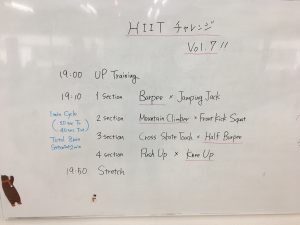 HIIT チャレンジ
Vol. 7 !!
19:00 UP Training
19:10 1 section Burpee × Jumping Jack
1min Cycle
2 section Mountain Climber × Front Kick Squat
3 section Cross State Touch × Half Burpee
4 section Push Up × Knee Up
19:50 Stretch